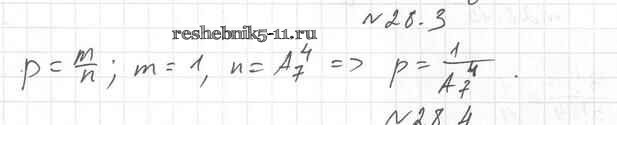 №28.3
reshebnik5-11.ru
p = m/n; m = 1, n = A₇⁴ => p = 1/A₇⁴.
№28.4